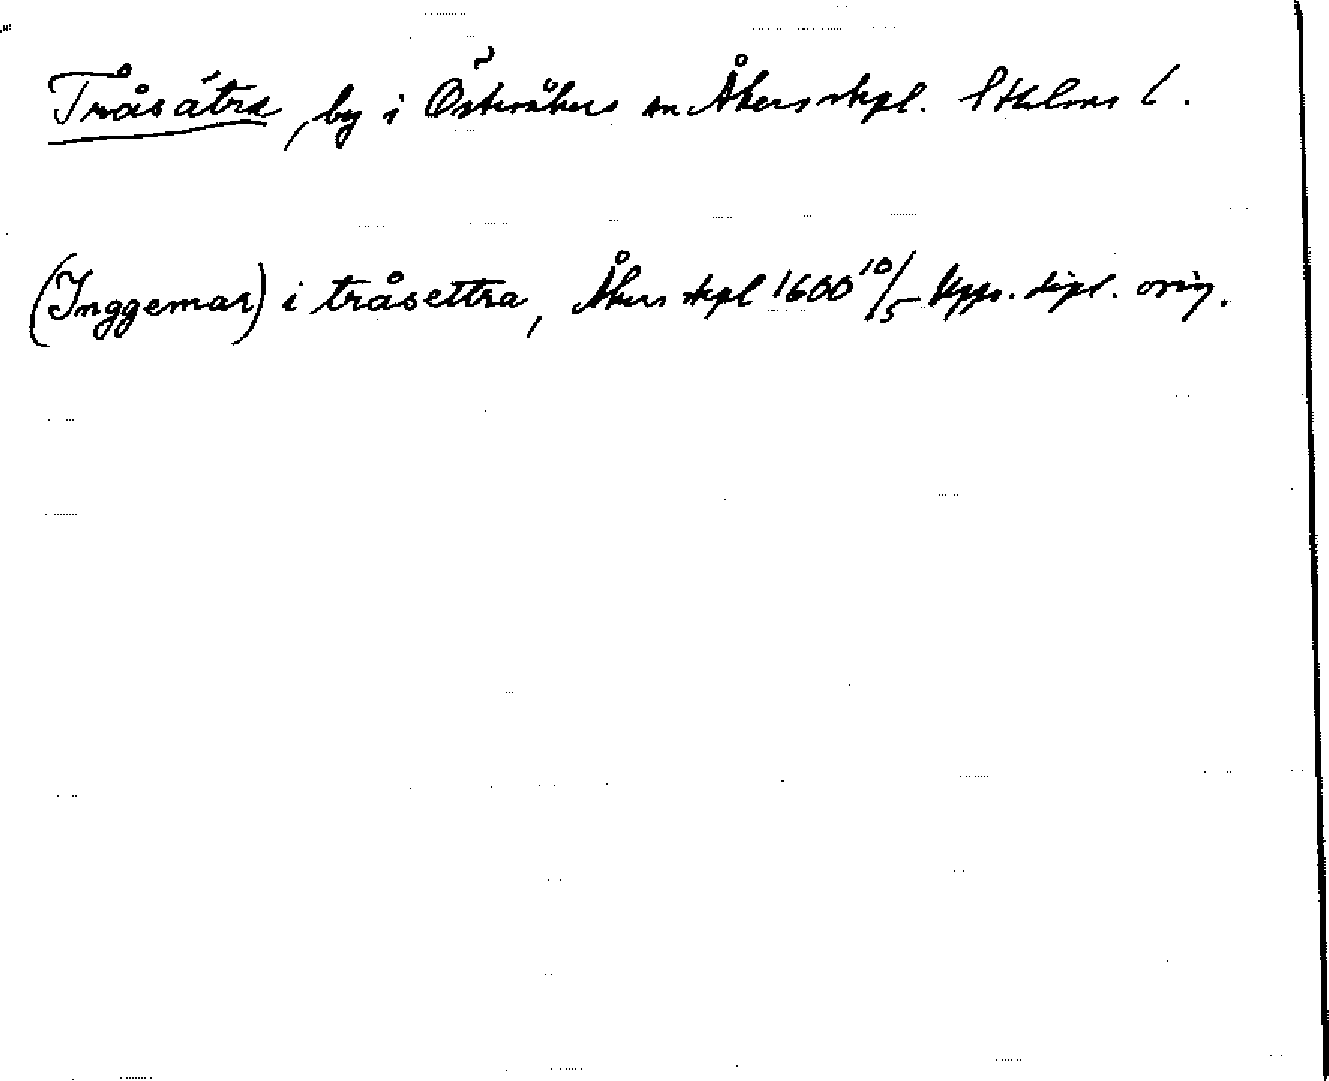 Tråsätra, by i Österåkers sn Åkers skpl. Sthlms l.
(Inggemar) i tråsettra, Åkers skpl 1600 10/5 Upps. dipl. orig.